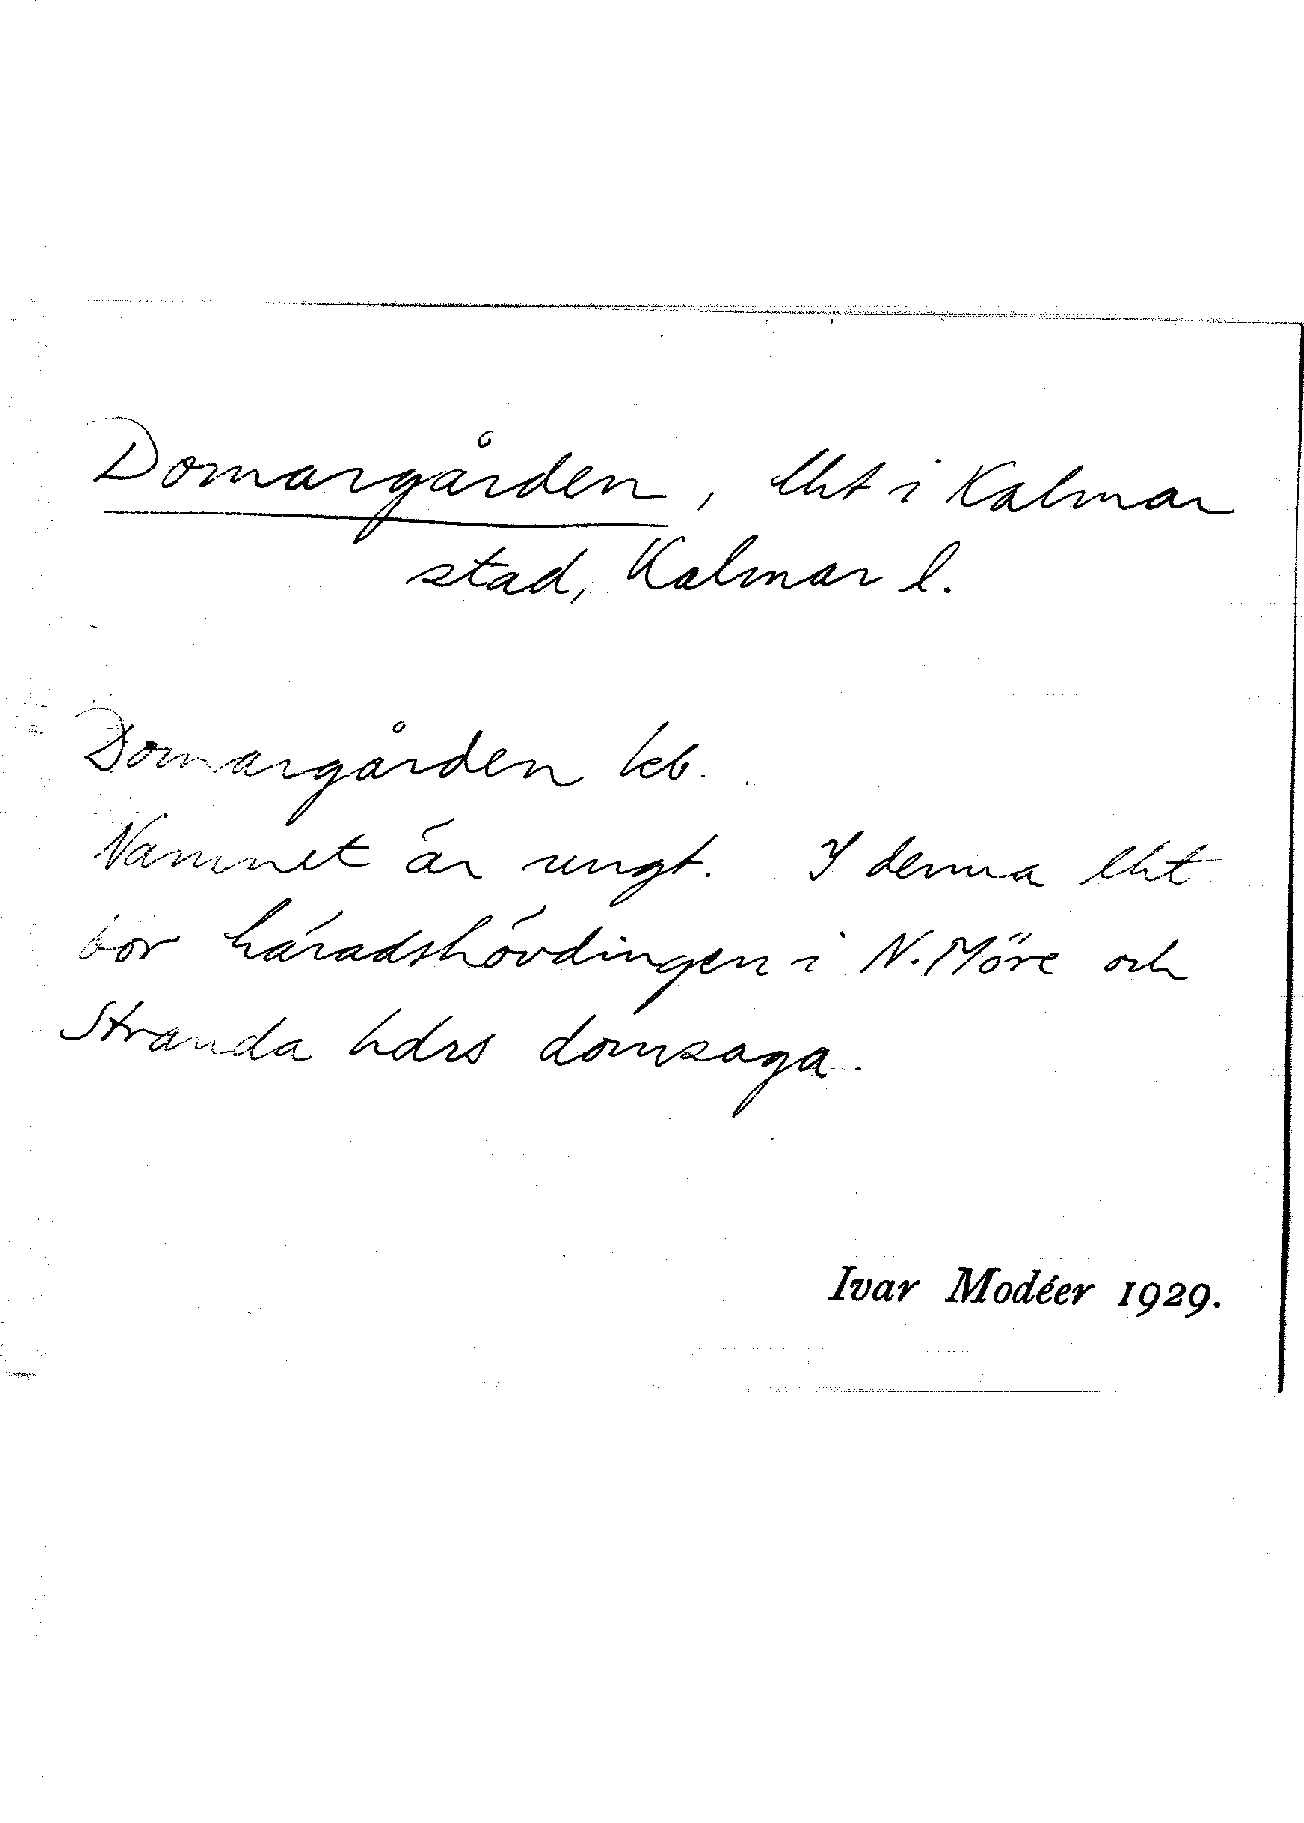 Domargården, lht i Kalmar
stad, Kalmar l.
Domargården kb.
Namnet är ungt. I denna lht
bor häradshövdingen i N. Möre och
Stranda hdrs domsaga.
Ivar Modéer 1929.